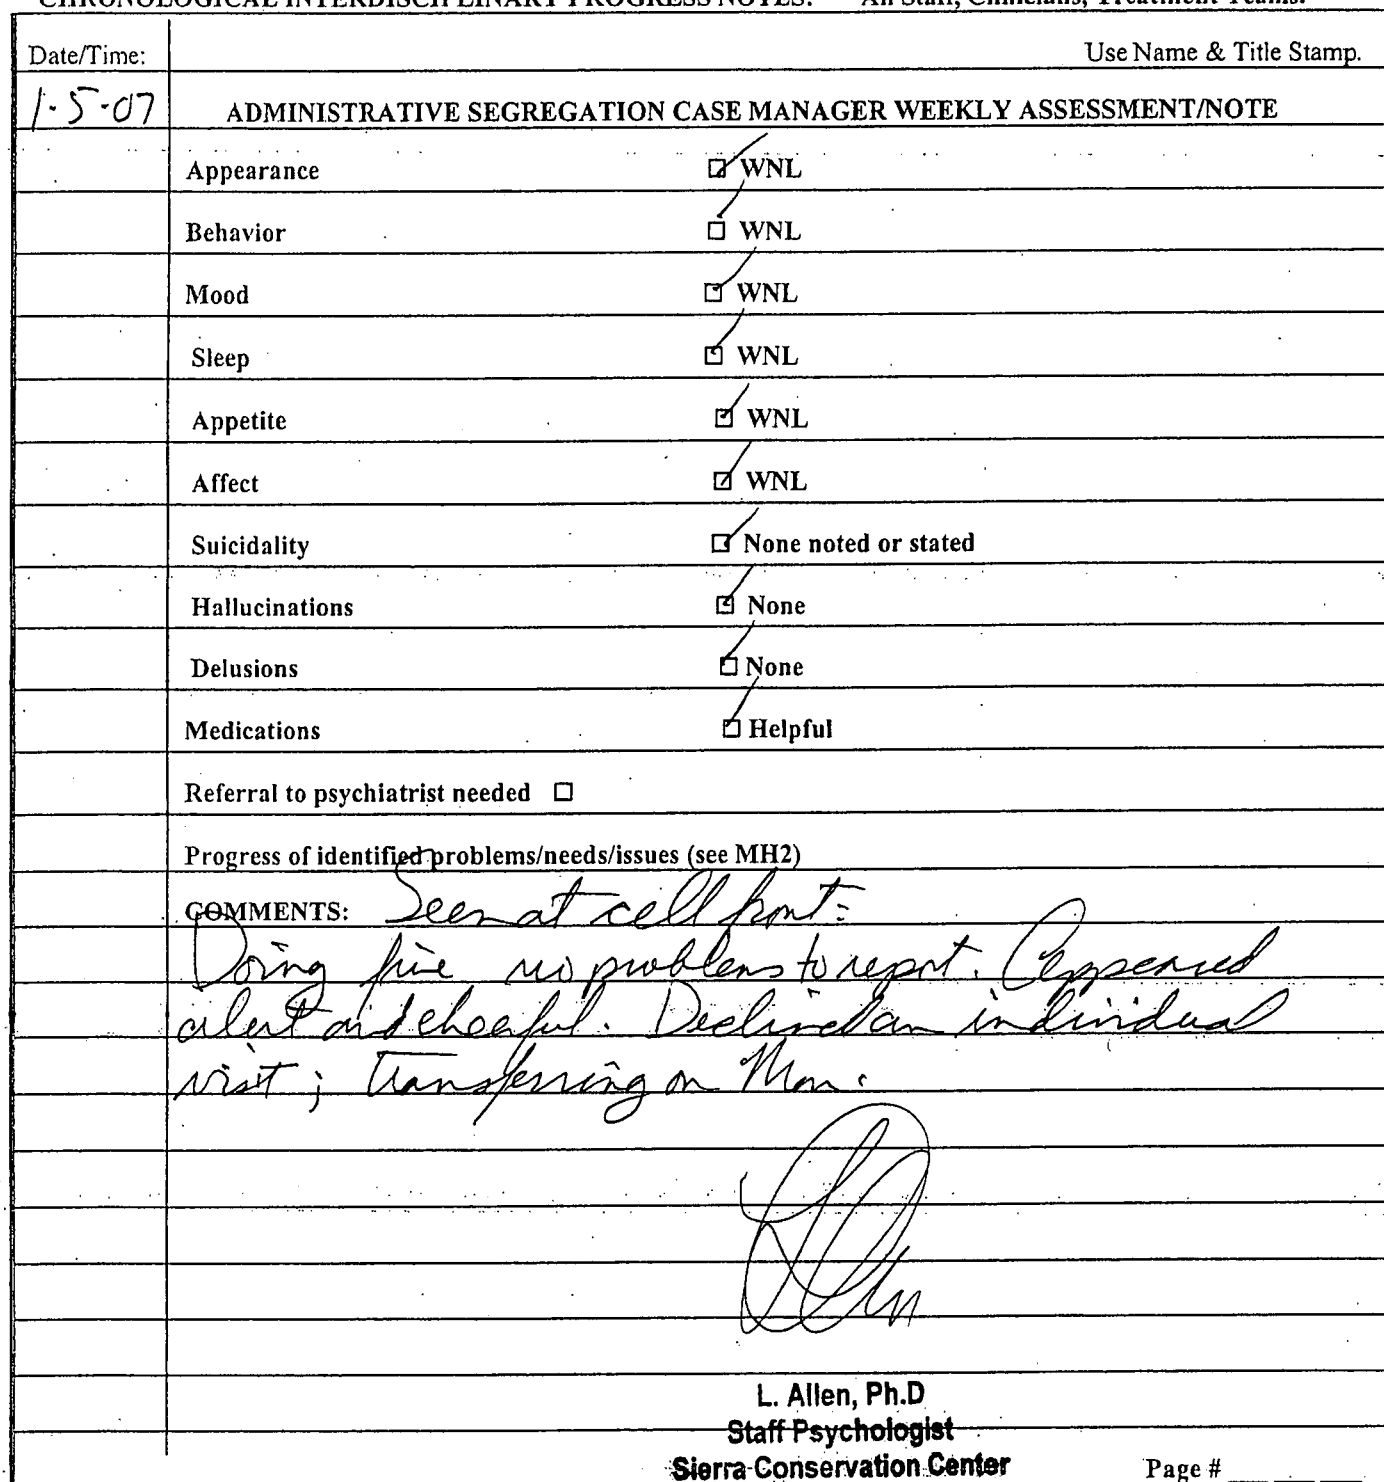 CHRONOLOGICAL INTERDISCIPLINARY PROGRESS NOTES: All Staff, Clinicians, Treatment Teams.
Date/Time: Use Name & Title Stamp.
1-5-07 ADMINISTRATIVE SEGREGATION CASE MANAGER WEEKLY ASSESSMENT/NOTE
Appearance WNL
Behavior WNL
Mood WNL
Sleep WNL
Appetite WNL
Affect WNL
Suicidality None noted or stated
Hallucinations None
Delusions None
Medications Helpful
Referral to psychiatrist needed
Progress of identified problems/needs/issues (see MH2)
COMMENTS: Seen at cell front:
Doing fine no problems to report. Appeared
alert and cheerful. Declined an individual
visit; transferring on Mon.
L. Allen, Ph.D
Staff Psychologist
Sierra Conservation Center
Page #